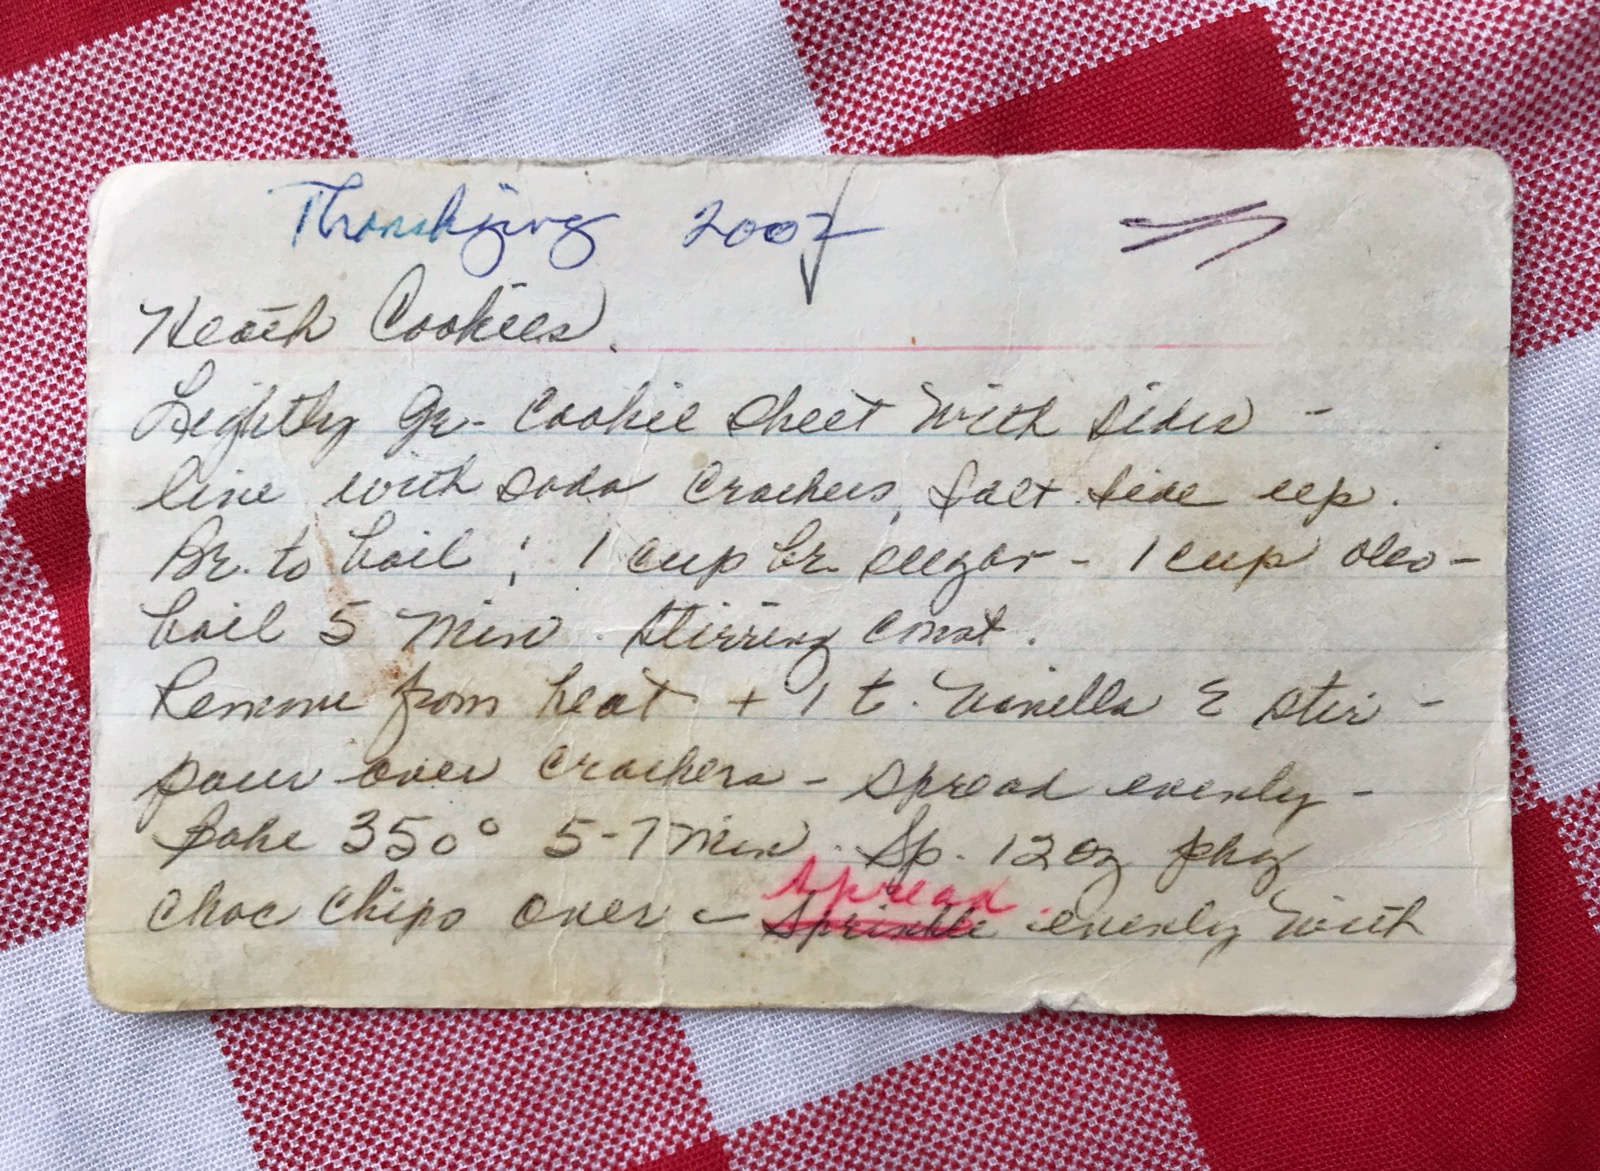 Thanskgivng 2007
Heath Cookies.
Lightly Gr- Cookie Sheet With Sides -
line with soda Crackers, Salt side up.
Br. to boil ; 1 cup br. sugar - 1 cup oleo -
boil 5 Min. stirring Const.
Remove from heat + 1 t. Vanilla & stir -
pour over Crackers - spread evenly -
Bake 350° 5-7 Min. Sp. 12 oz pkg
Choc Chips over - Sprinkle spread evenly With